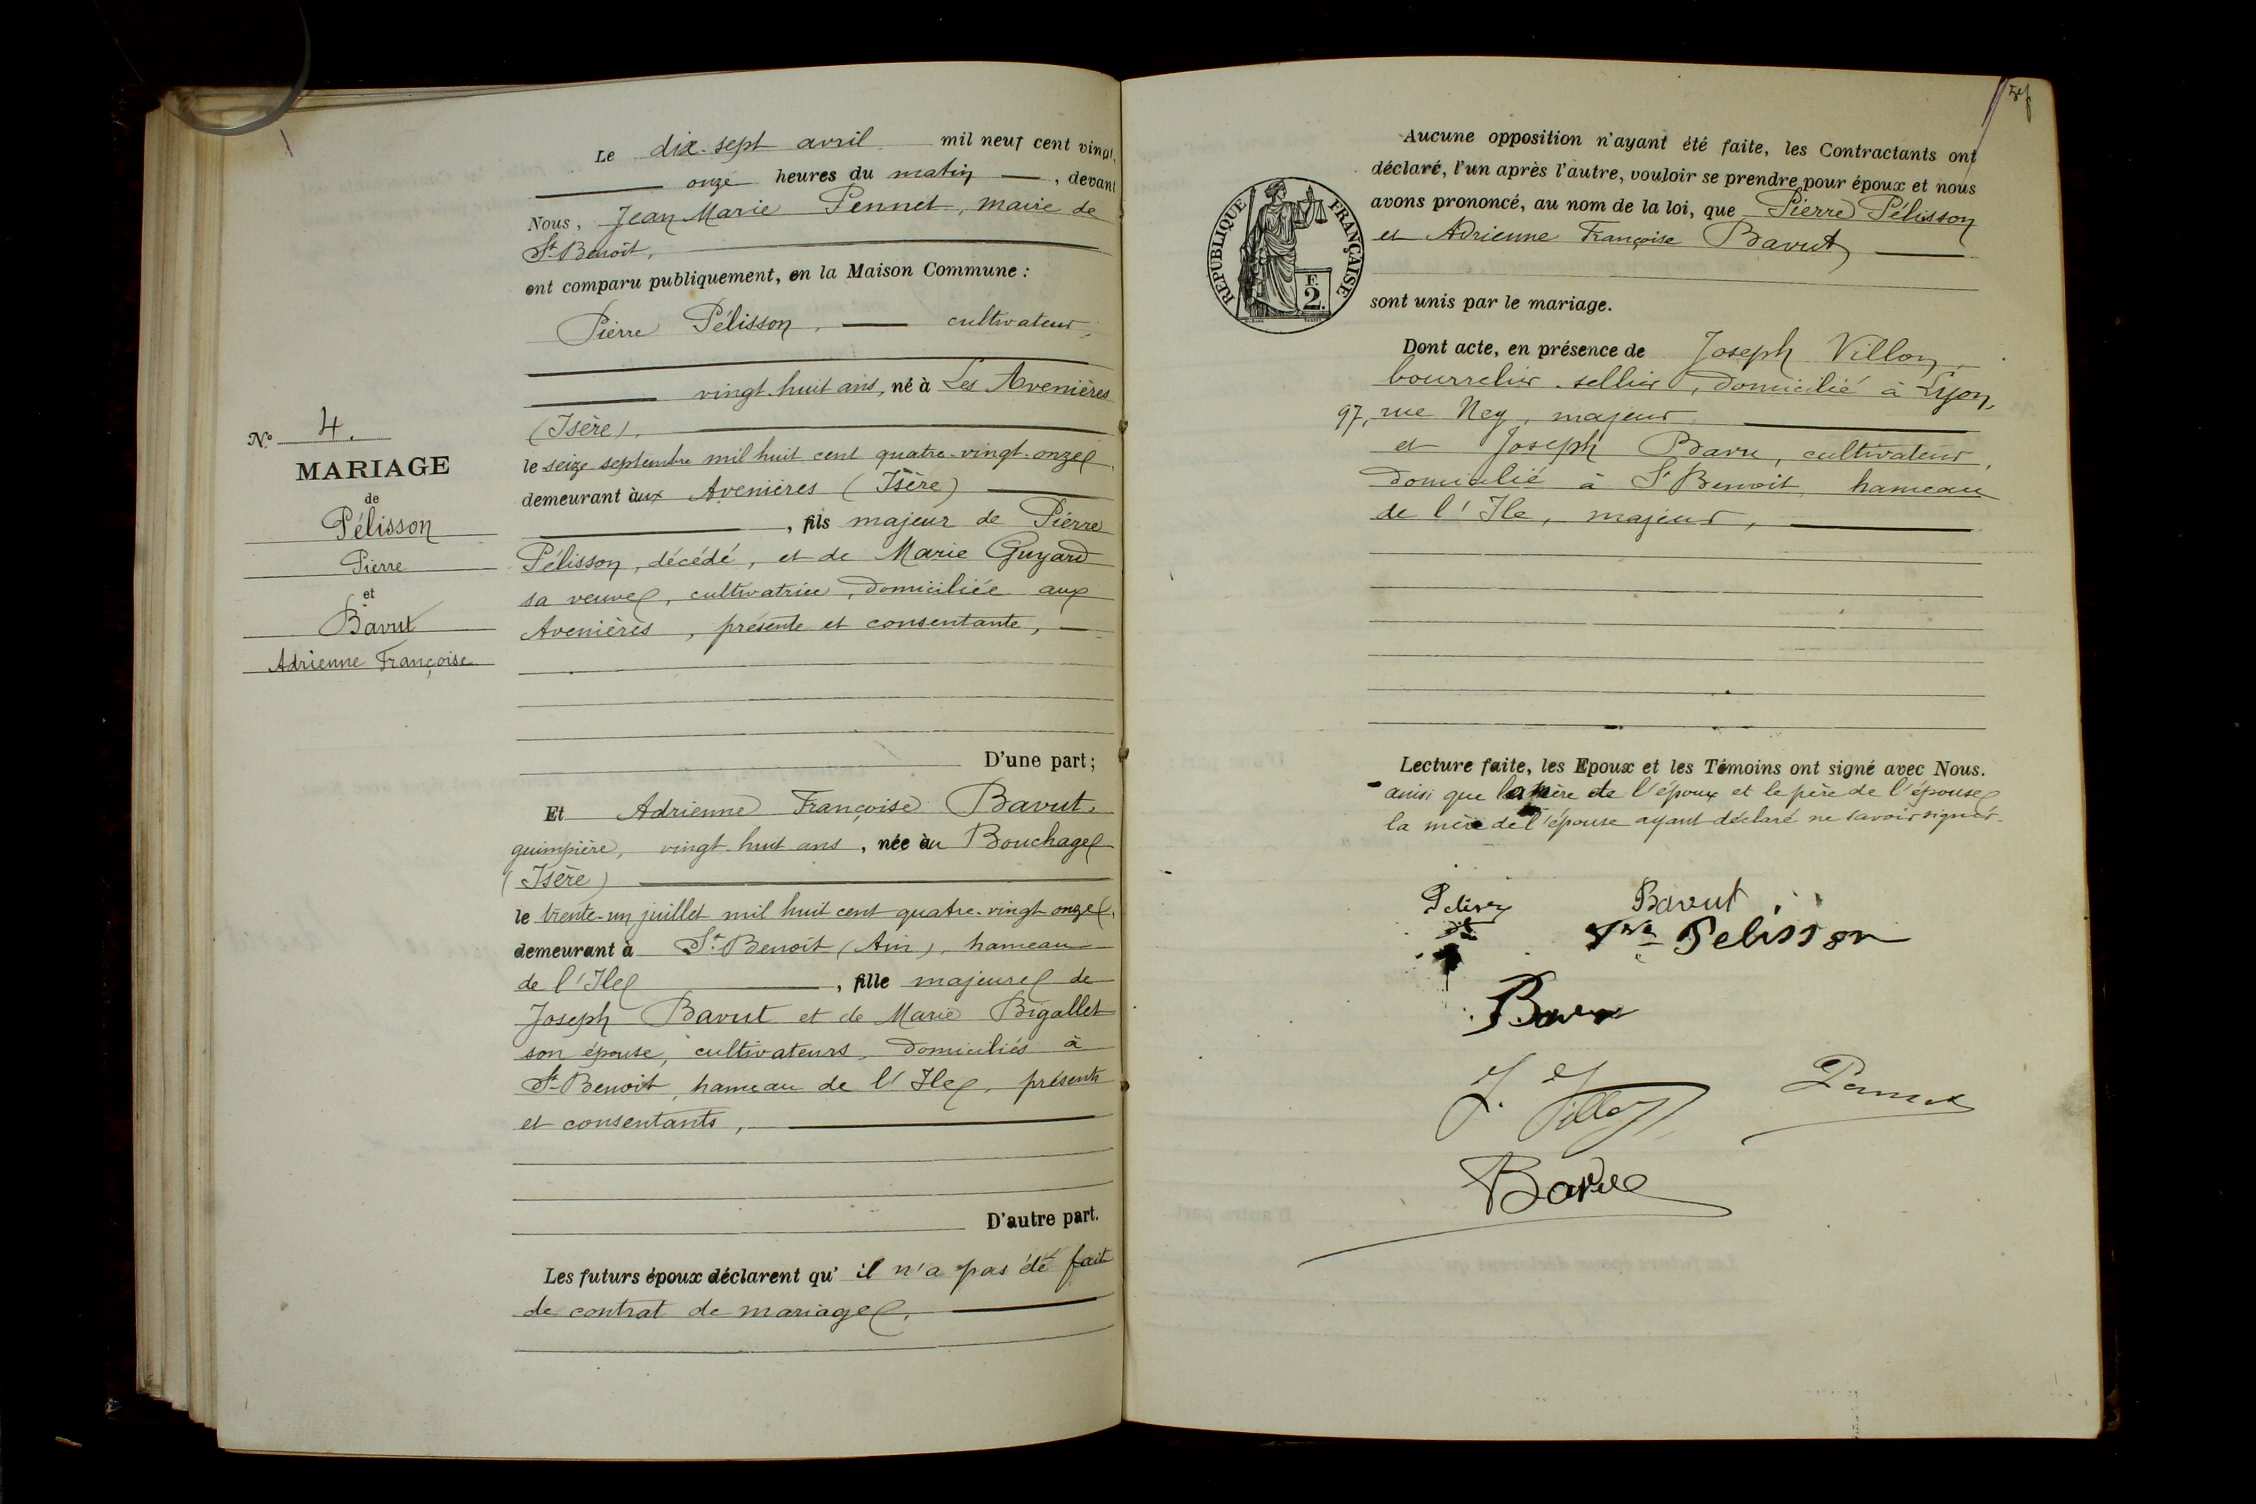 Le dix-sept avril mil neuf cent vingt,
onze heures du matin, devant
Nous, Jean Marie Pennet, maire de
St Benoît,
ont comparu publiquement, en la Maison Commune :
Pierre Pélisson, cultivateur,
vingt-huit ans, né à Les Avenières
(Isère),
le seize septembre mil huit cent quatre-vingt-onze,
demeurant aux Avenières (Isère)
, fils majeur de Pierre
Pélisson, décédé, et de Marie Guyard
sa veuve, cultivatrice, domiciliée aux
Avenières, présente et consentante,
D'une part ;
Et Adrienne Françoise Bavut,
guimpière, vingt-huit ans, née au Bouchage
(Isère)
le trente-un juillet mil huit cent quatre-vingt-onze,
demeurant à St Benoît (Ain), hameau
de l'Ile, fille majeure de
Joseph Bavut et de Marie Bigallet
son épouse, cultivateurs, domiciliés à
St Benoît, hameau de l'Ile, présents
et consentants,
D'autre part.
Les futurs époux déclarent qu'il n'a pas été fait
de contrat de mariage.
No 4.
MARIAGE
de
Pélisson
Pierre
et
Bavut
Adrienne Françoise
Aucune opposition n'ayant été faite, les Contractants ont
déclaré, l'un après l'autre, vouloir se prendre pour époux et nous
avons prononcé, au nom de la loi, que Pierre Pélisson
et Adrienne Françoise Bavut
sont unis par le mariage.
RÉPUBLIQUE FRANÇAISE
F.
2.
Dont acte, en présence de Joseph Villon,
bourrelier-sellier, domicilié à Lyon,
97, rue Ney, majeur
et Joseph Bavu, cultivateur,
domicilié à St Benoit, hameau
de l'Ile, majeur,
Lecture faite, les Epoux et les Témoins ont signé avec Nous.
ainsi que la mère de l'époux et le père de l'épouse
la mère de l'épouse ayant déclaré ne savoir signer.
Bavut
Pelisson
J. Villon
Pennet